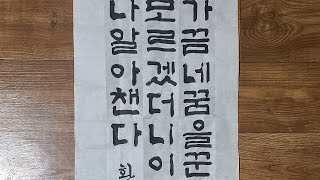 가꿈네꿈을꾼
모르겠더니이
나알아챈다
화